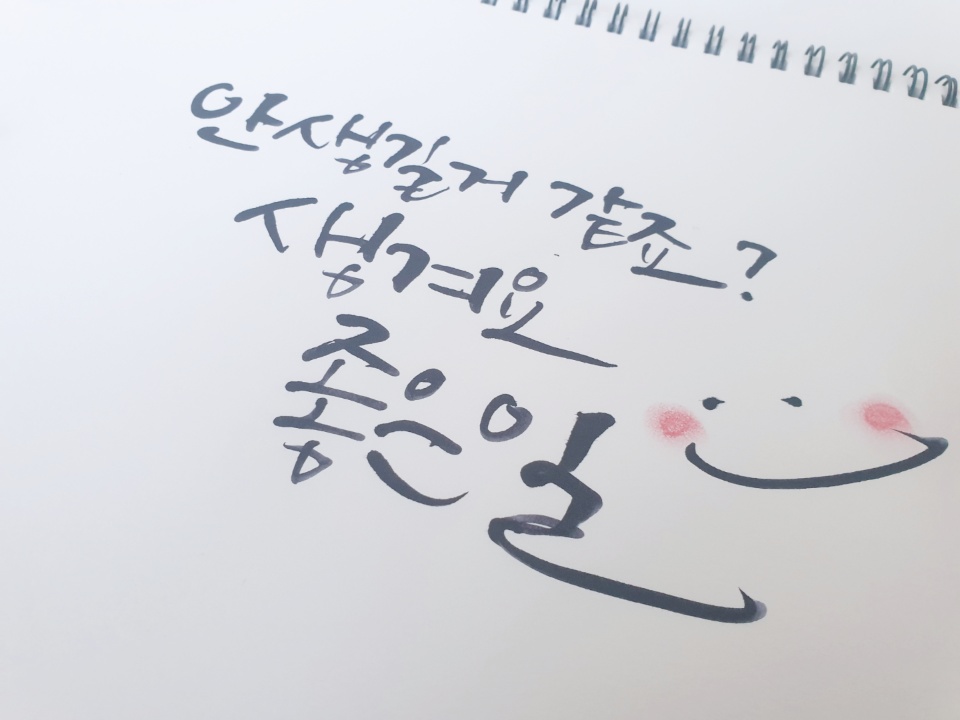 안생길거 같죠?
생겨요
좋은일